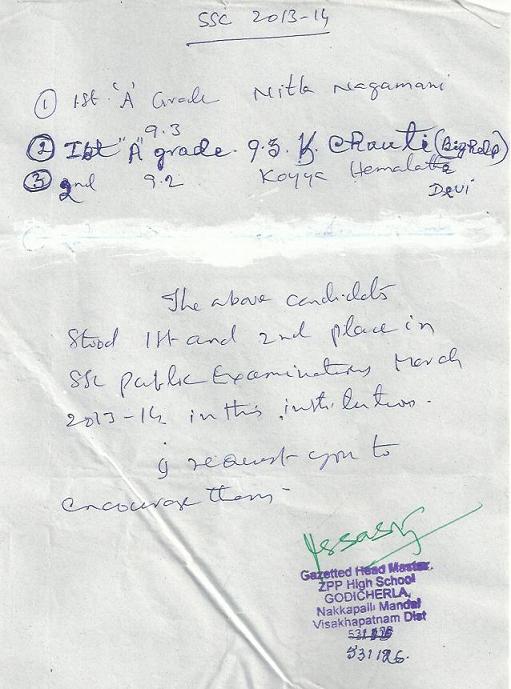 SSC 2013-14
① Ist 'A' Grade Nitla Nagamani
9.3
② Ist "A" grade. 9.3. K. Chanti (Big Help)
③ 2nd 9.2 Koyya Hemalatha
Devi
The above candidates
Stood 1st and 2nd place in
SSC public Examinations March
2013-14 in this institution.
I request you to
encourage them.
Gazetted Head Master.
ZPP High School
GODICHERLA,
Nakkapalli Mandal
Visakhapatnam Dist
531126.